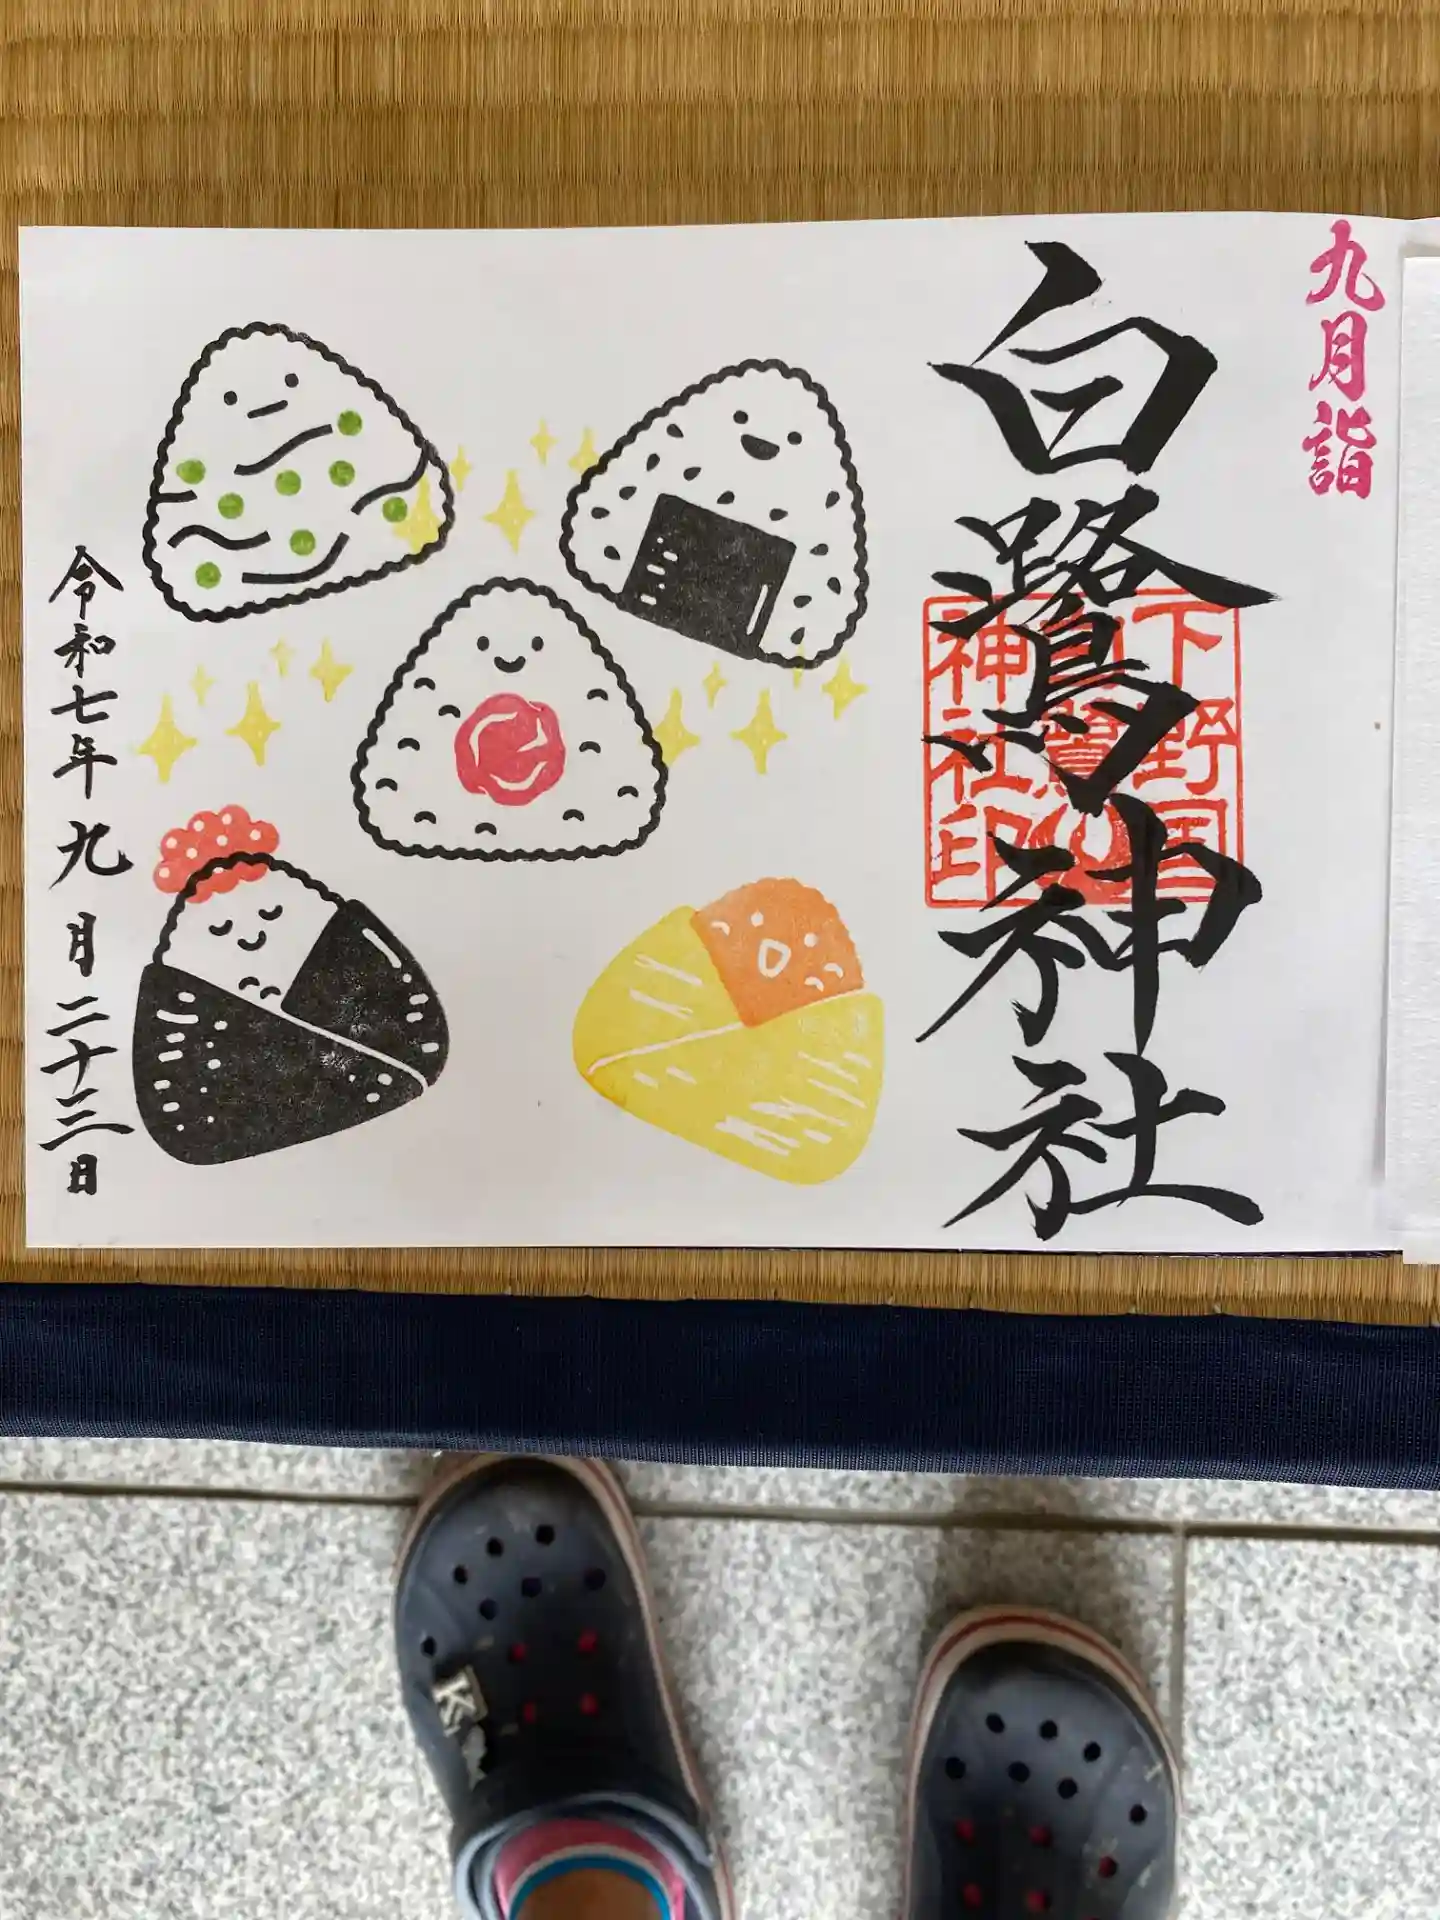 九月詣
白鷺神社
下野国
白鷺
神社印
令和七年九月二十三日
K